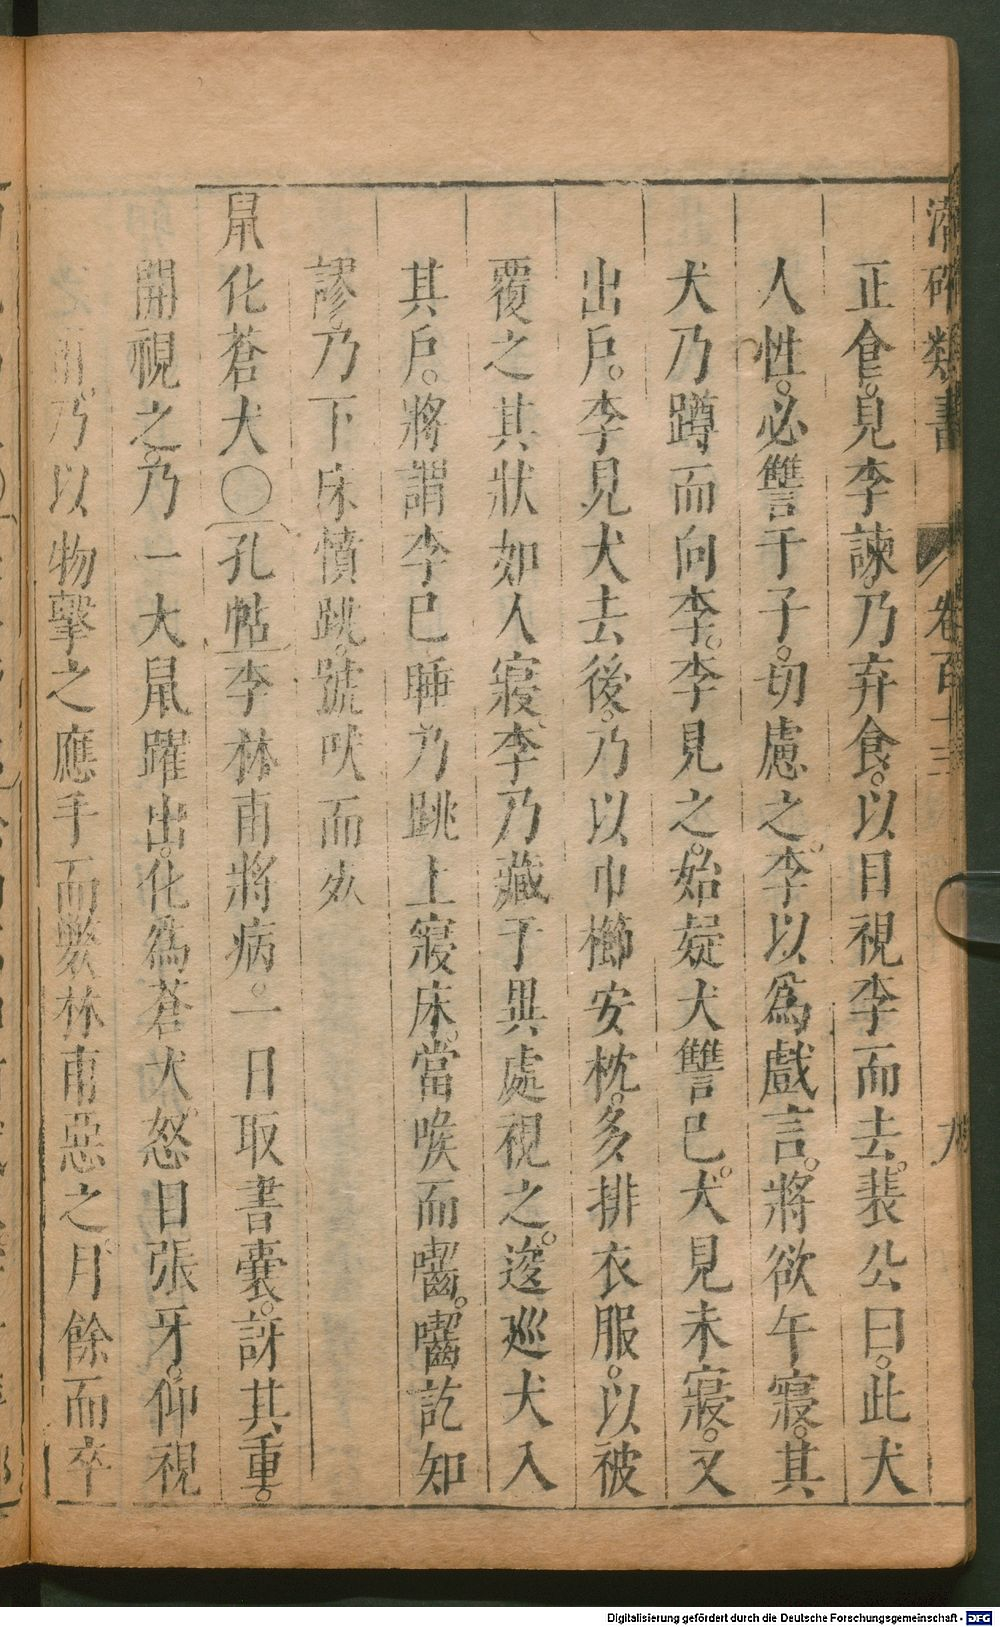 類書 卷百十三 九
正飠。見李諫。乃弃食。以目視李而去。裴公曰。此犬
人性。必讐于子。切慮之。李以爲戲言。將欲午寢。其
犬乃蹲而向李。李見之。始疑犬讐已。犬見未寢。又
出戶。李見犬去後。乃以巾櫛安枕。多排衣服。以被
覆之其狀如人寢。李乃藏于異處視之。逡巡犬入
其戶。將謂李已睡乃跳上寢床。當喉而嚙。嚙訖知
謬乃下床憤跳。號吠而死
鼠化蒼犬○孔帖李林甫將病。一日取書囊。訝其重。
開視之。乃一大鼠躍出。化爲蒼犬。怒目張牙。仰視
乃以物擊之應手而斃林甫惡之。月餘而卒
Digitalisierung gefördert durch die Deutsche Forschungsgemeinschaft - DFG